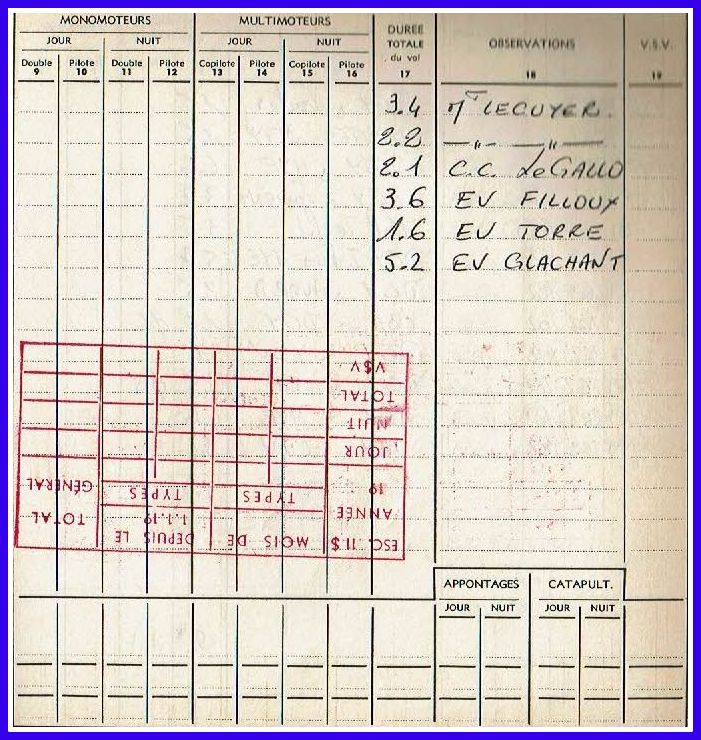 MONOMOTEURS MULTIMOTEURS DUREE TOTALE du vol OBSERVATIONS V.S.V.
JOUR NUIT JOUR NUIT
Double Pilote Double Pilote Copilote Pilote Copilote Pilote
9 10 11 12 13 14 15 16 17 18 19
3.4 LECUYER.
2.2 —〃— —〃—
2.1 C.C. LeGALLO
3.6 EV FILLOUX
1.6 EV TORRE
5.2 EV GLACHANT
ESC. 11 $ MOIS DE DEPUIS LE 1.1.19 TOTAL GÉNÉRAL
ANNÉE 19 TYPES TYPES
JOUR
NUIT
TOTAL
V$V
APPONTAGES CATAPULT.
JOUR NUIT JOUR NUIT